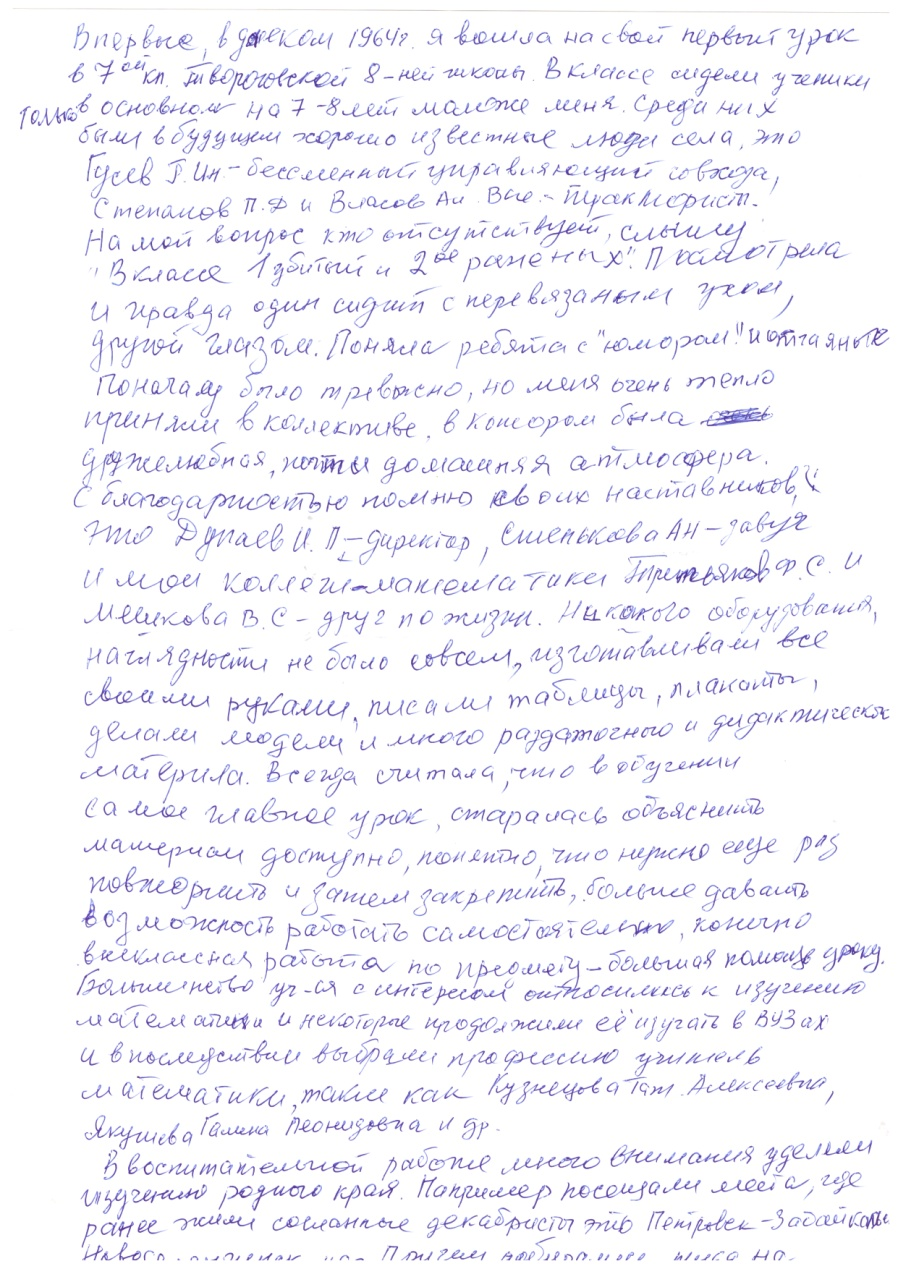 Впервые, в далеком 1964г. я вошла на свой первый урок
в 7ой кл. Твороговской 8-ней школы. В классе сидели ученики
только в основном на 7-8 лет моложе меня. Среди них
были в будущем хорошо известные люди села, это
Гусев Г.Ин.- бессменный управляющий совхоза,
Степанов П.Ф и Власов Ал. Вас.- трактористы.
На мой вопрос кто отсутствует, слышу
"В классе 1 убитый и 2ое раненых". Посмотрела
и правда один сидит с перевязаным ухом,
другой глазом. Поняла ребята с "юмором" и отчаяные
Поначалу было тревожно, но меня очень тепло
приняли в коллективе, в котором была
дружелюбная, почти домашняя атмосфера.
С благодарностью помню своих наставников,
это Дунаев И. П - директор, Стенькова Ан - завуч
и мои коллеги-математики Третьяков Ф.С. и
Мешкова В.С - друг по жизни. Никакого оборудования,
наглядности не было совсем, изготавливали все
своими руками, писали таблицы, плакаты,
делали модели и много раздаточного и дидактическ
материла. Всегда считала, что в обучении
самое главное урок, старалась объяснить
материал доступно, понятно, что нужно еще раз
повторить и затем закрепить, больше давать
возможность работать самостоятельно, конечно
внеклассная работа по предмету - большая помощь уроку.
Большинство уч-ся с интересом относились к изучению
математики и некоторые продолжили её изучать в ВУЗах
и впоследствии выбрали профессию учитель
математики, такие как Кузнецова Тат. Алексеевна,
Якушева Галина Леонидовна и др.
В воспитательной работе много внимания уделяли
изучению родного края. Например посещали места, где
ранее жили сосланные декабристы это Петровск-Забайкаль